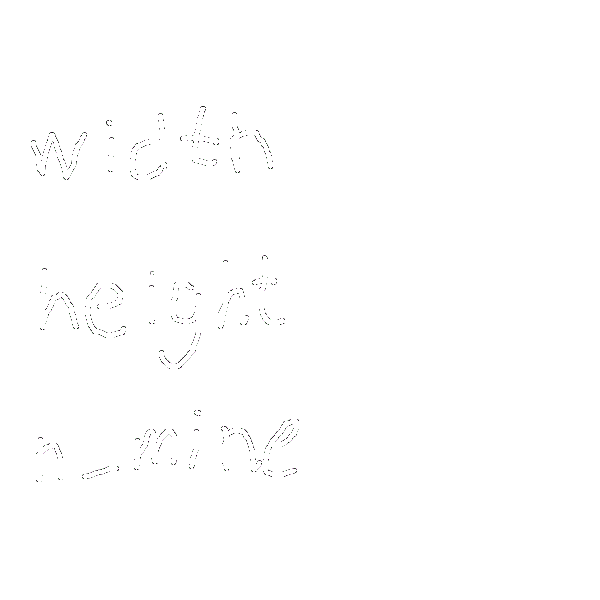 width
height
n_mine